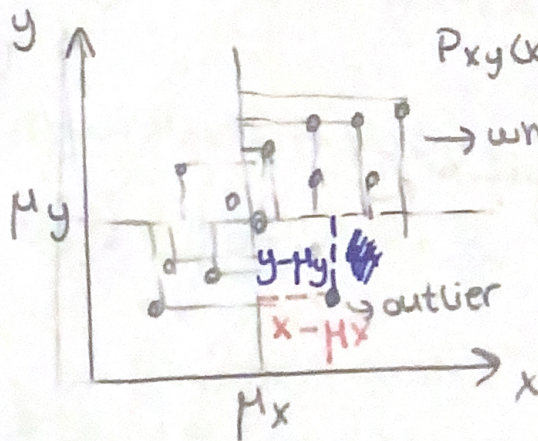 y
Pxy(x
→ wh
μy
y-μy
→ outlier
x-μx
x
μx